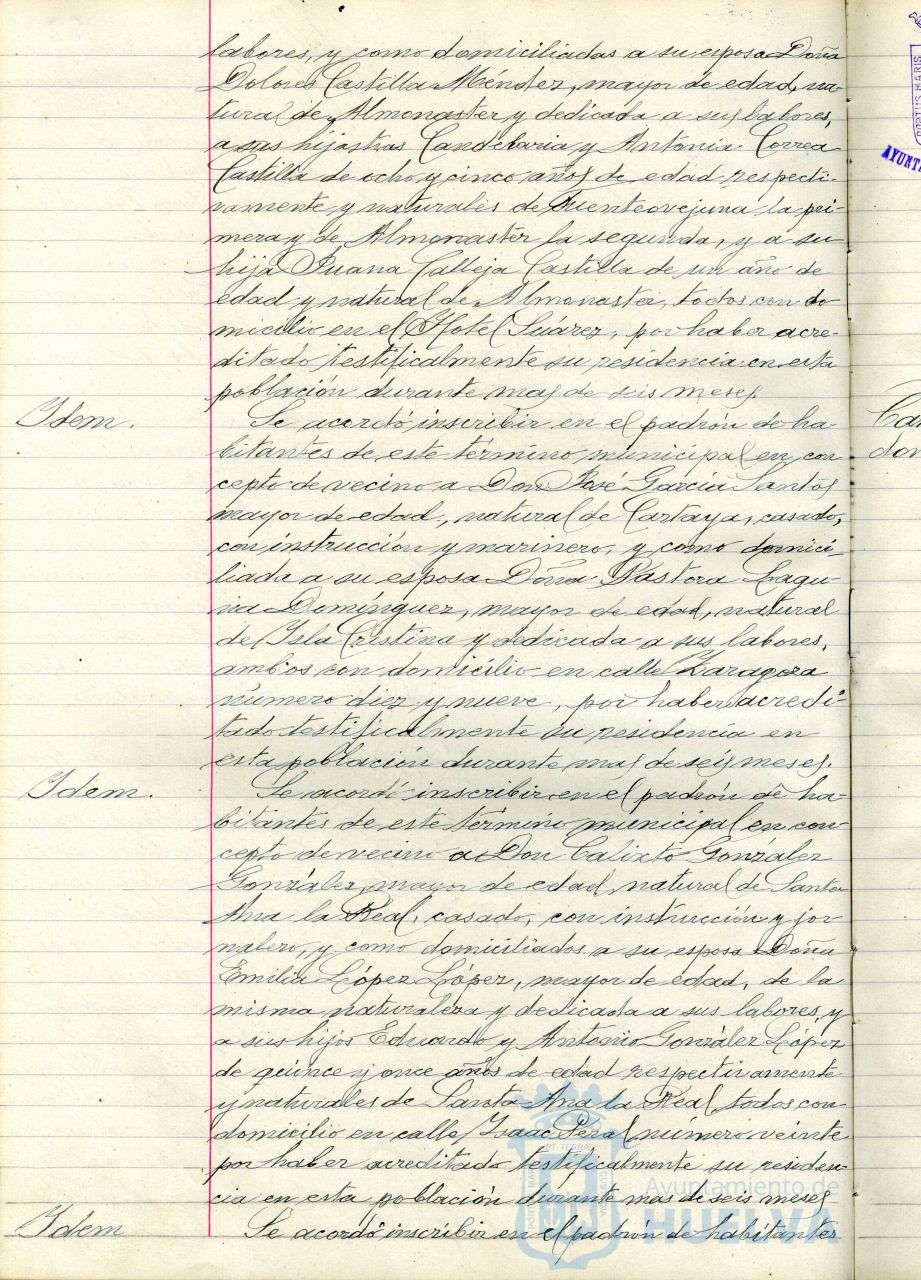 labores, y como domiciliadas a su esposa Doña
Dolores Castilla Méndez, mayor de edad, na-
tural de Almonaster y dedicada a sus labores,
a sus hijastras Candelaria y Antonia Correa
Castilla de ocho y cinco años de edad respecti-
vamente y naturales de Fuenteovejuna la pri-
mera y de Almonaster la segunda, y a su
hija Juana Calleja Castilla de un año de
edad y natural de Almonaster, todos con do
micilio en el Hotel Suárez, por haber acre-
ditado testificalmente su residencia en esta
población durante mas de seis meses.
Idem.
Se acordó inscribir en el padrón de ha-
bitantes de este término municipal en con
cepto de vecino a Don José García Santos
mayor de edad, natural de Cartaya, casado,
con instrucción y marinero, y como domici-
liada a su esposa Doña Pastora Lagu-
na Domínguez, mayor de edad, natural
de Isla Cristina y dedicada a sus labores,
ambos con domicilio en calle Zaragoza
número diez y nueve, por haber acredi-
tado testificalmente su residencia en
esta población durante mas de seis meses.
Idem.
Se acordó inscribir en el padrón de ha-
bitantes de este término municipal en con-
cepto de vecino a Don Calixto González
González, mayor de edad, natural de Santa
Ana la Real, casado, con instrucción y jor-
nalero, y como domiciliados a su esposa Doña
Emilia López López, mayor de edad, de la
misma naturaleza y dedicada a sus labores, y
a sus hijos Eduardo y Antonio González López
de quince y once años de edad respectivamente
y naturales de Santa Ana la Real, todos con
domicilio en calle Isaac Peral número veinte
por haber acreditado testificalmente su residen-
cia en esta población durante mas de seis meses
Idem
Se acordó inscribir en el padrón de habitantes
Ayuntamiento de
HUELVA